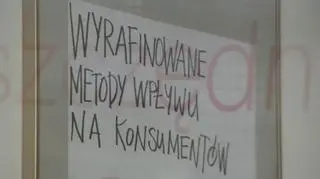 WYRAFINOWANE
METODY WPŁYWU
NA KONSUMENTÓW